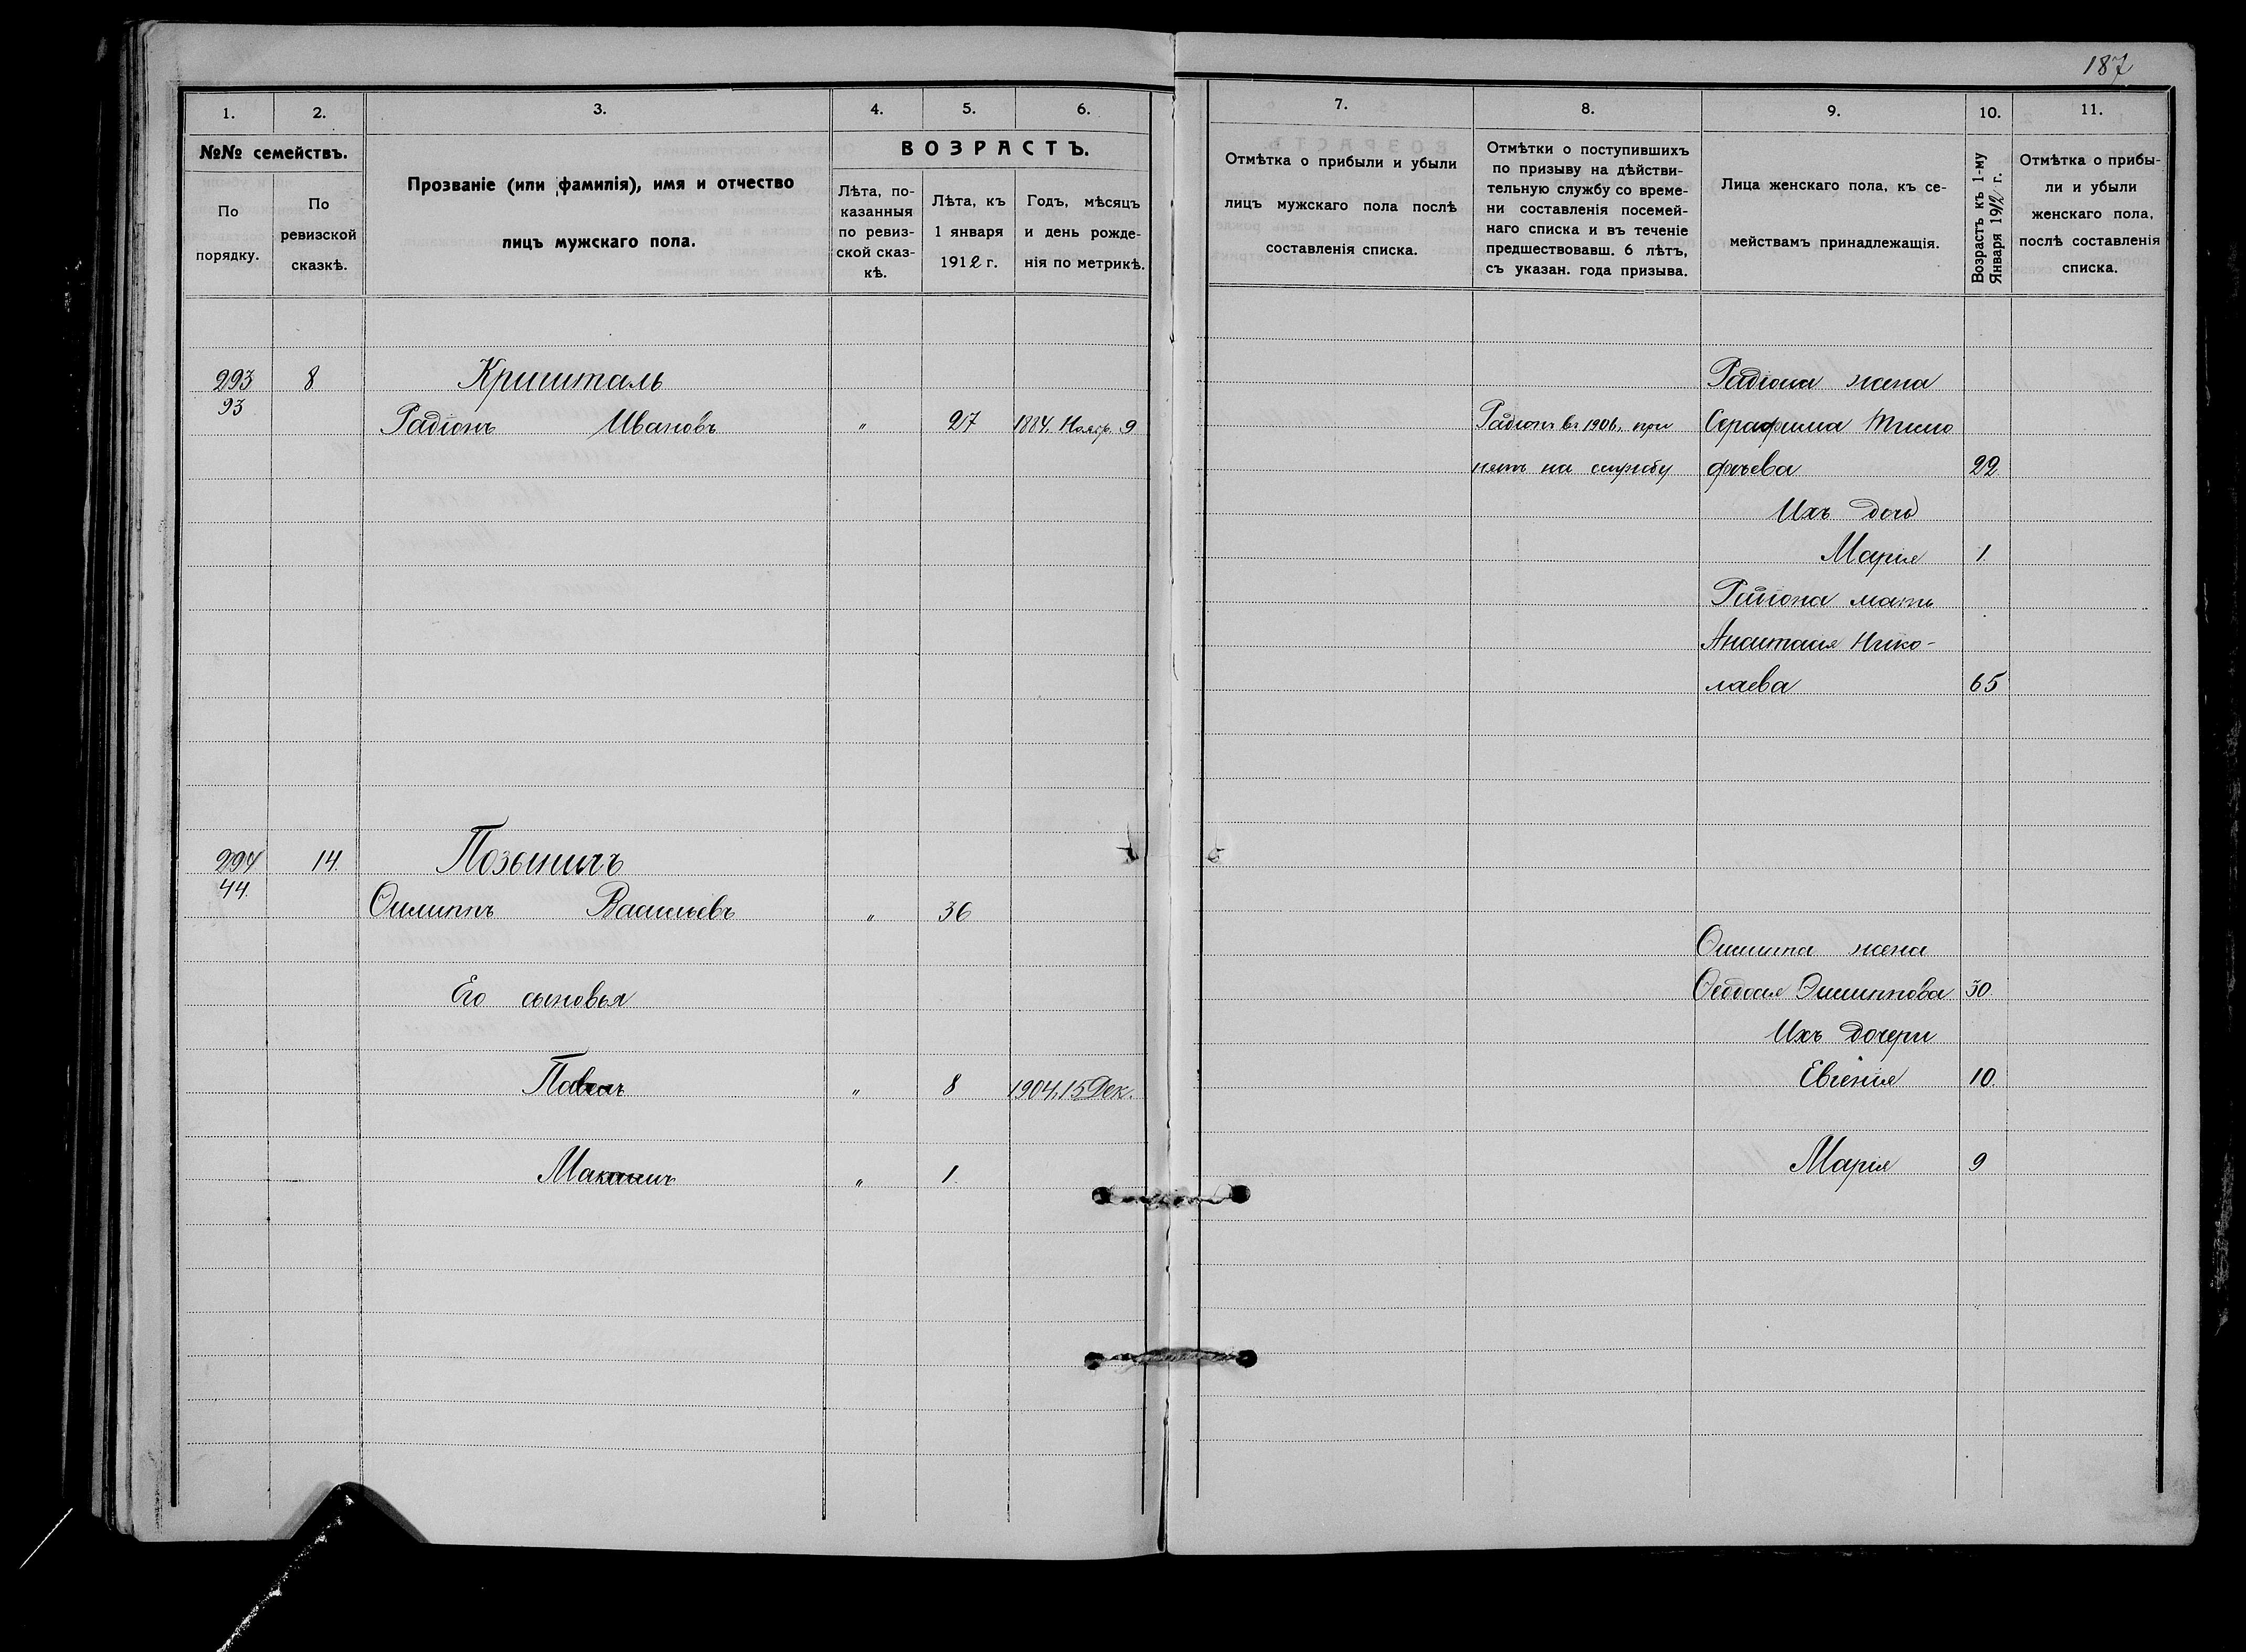 187
1. 2. 3. 4. 5. 6. 7. 8. 9. 10. 11.
№№ семействъ.
По
порядку.
По
ревизской
сказкѣ.
Прозваніе (или фамилія), имя и отчество
лицъ мужскаго пола.
ВОЗРАСТЪ.
Лѣта, по-
казанныя
по ревиз-
ской сказ-
кѣ.
Лѣта, къ
1 января
1912 г.
Годъ, мѣсяцъ
и день рожде-
нія по метрикѣ.
Отмѣтка о прибыли и убыли
лицъ мужскаго пола послѣ
составленія списка.
Отмѣтки о поступившихъ
по призыву на дѣйстви-
тельную службу со време-
ни составленія посемей-
наго списка и въ теченіе
предшествовавш. 6 лѣтъ,
съ указан. года призыва.
Лица женскаго пола, къ се-
мействамъ принадлежащія.
Возрастъ къ 1-му
Января 1912 г.
Отмѣтка о прибы-
ли и убыли
женскаго пола,
послѣ составленія
списка.
293 8 Кришталь
93
Радіонъ Ивановъ " 27 1884. Нояр. 9
Радіонъ въ 1906. при
нятъ на службу
Радіона жена
Серафима Тимо
фѣева 22
Ихъ дочь
Марія 1
Радіона мать
Анастасія Нико-
лаева 65
294 14. Позыничъ
44.
Филиппъ Васильевъ " 36
Его сыновья
Павелъ " 8 1904. 15 Дек.
" 1.
Филиппа жена
Федосія Филиппова 30.
Ихъ дочери
Евгенія 10.
Марія 9